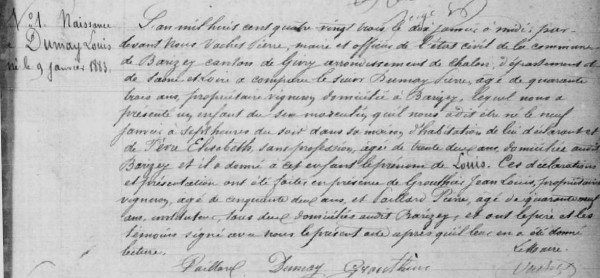 N° 1. Naissance
de Dumay Louis
né le 9 janvier 1883.
L'an mil huit cent quatre vingt trois le dix janvier à midi, par
devant Nous Vachet Pierre, maire et officier de l'état civil de la commune
de Barizey canton de Givry arrondissement de Chalon, département
de Saône et Loire a comparu le sieur Dumay Pierre, agé de quarante
trois ans, propriétaire vigneron domicilié à Barizey, lequel nous a
présenté un enfant du sexe masculin, qu'il nous a dit être né le neuf
janvier à sept heures du soir dans sa maison d'habitation de lui déclarant et
de Élisabeth, sans profession, agée de trente deux ans, domiciliée audit
Barizey et il a donné à cet enfant le prénom de Louis. Ces déclarations
et présentation ont été faites en présence de Jean Louis, propriétaire
vigneron, agé de cinquante deux ans, et Paillard Pierre, agé de quarante neuf
ans, instituteur, tous deux domiciliés audit Barizey, et ont le père et les
témoins signé avec nous le présent acte après qu'il leur en a été donné
lecture. Le Maire.
Paillard Dumay Vachet